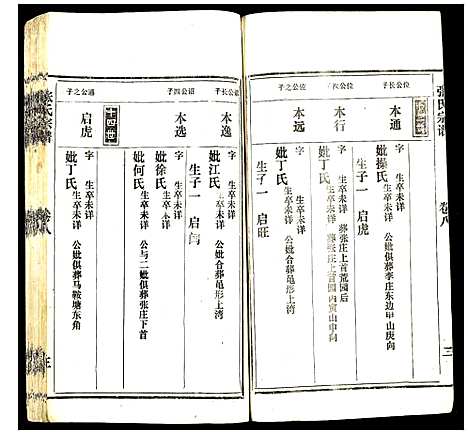 张氏宗谱
卷八
三
位公长子
本通
字
生卒未详
妣操氏
生卒未详 公妣俱葬李庄东边中山庚向
生子一 启虎
位公四子
本行
字
生卒未详 葬张庄上首荒园后
妣丁氏
生卒未详 葬张庄上首园内寅山申向
位公之子
本远
字
生卒未详
妣丁氏
生卒未详 公妣合葬黾形上湾
生子一 启旺
诏公长子
本逸
字
生卒未详
妣江氏
生卒未详 公妣合葬黾形上湾
生子一 启
诏公四子
本选
字
生卒未详
妣徐氏
生卒未详
妣何氏
生卒未详 公与二妣俱葬张庄下首
通公之子
启虎
字
生卒未详
妣丁氏
生卒未详 公妣俱葬马鞍塘东角
张氏宗谱
卷八